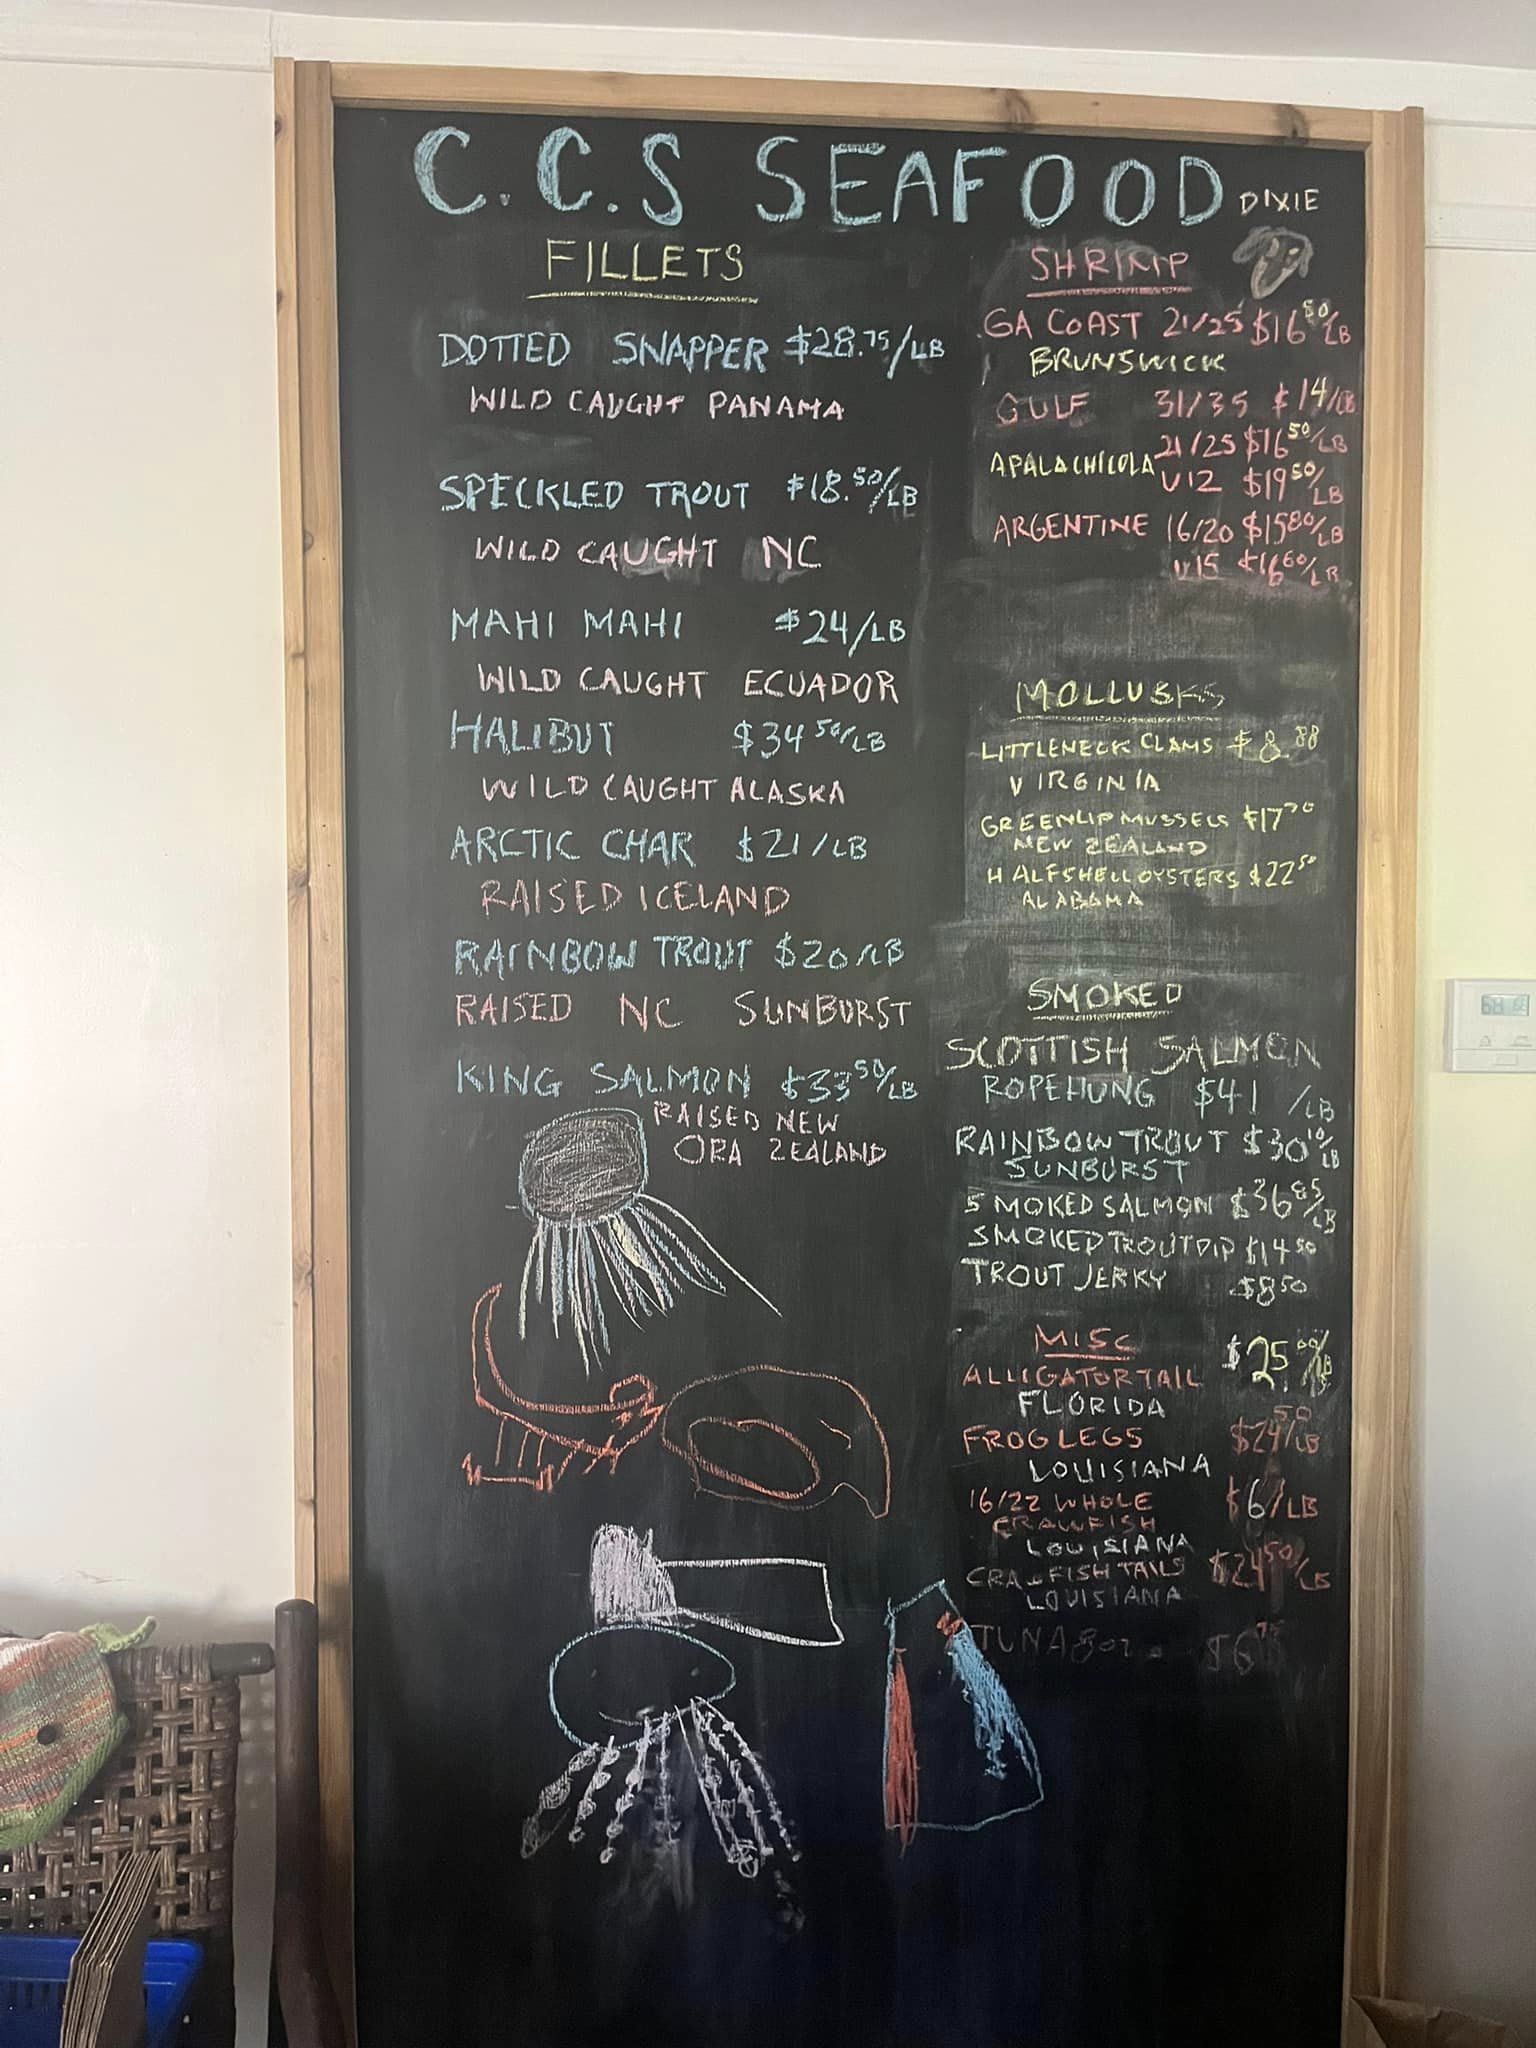 C.C.S SEAFOOD
DIXIE
FILLETS
DOTTED SNAPPER $28.75/LB
WILD CAUGHT PANAMA
SPECKLED TROUT $18.50/LB
WILD CAUGHT NC
MAHI MAHI $24/LB
WILD CAUGHT ECUADOR
HALIBUT $34 50/LB
WILD CAUGHT ALASKA
ARCTIC CHAR $21/LB
RAISED ICELAND
RAINBOW TROUT $20/LB
RAISED NC SUNBURST
KING SALMON $33 50/LB
RAISED NEW
ORA ZEALAND
SHRIMP
GA COAST 21/25 $16 50/LB
BRUNSWICK
GULF 31/35 $14/LB
21/25 $16 50/LB
APALACHICOLA
U12 $19 50/LB
ARGENTINE 16/20 $15 80/LB
U15 $16 60/LB
MOLLUSKS
LITTLENECK CLAMS $8.88
VIRGINIA
GREENLIP MUSSELS $17
NEW ZEALAND
HALFSHELL OYSTERS $22 50
ALABAMA
SMOKED
SCOTTISH SALMON
ROPEHUNG $41 /LB
RAINBOW TROUT $30 10/LB
SUNBURST
SMOKED SALMON $36 85/LB
SMOKED TROUT DIP $14 50
TROUT JERKY $8 50
MISC
ALLIGATOR TAIL $25.00/LB
FLORIDA
FROG LEGS $24 50/LB
LOUISIANA
16/22 WHOLE $6/LB
CRAWFISH
LOUISIANA
CRAWFISH TAILS $24 50/LB
LOUISIANA
TUNA 8oz $6
68